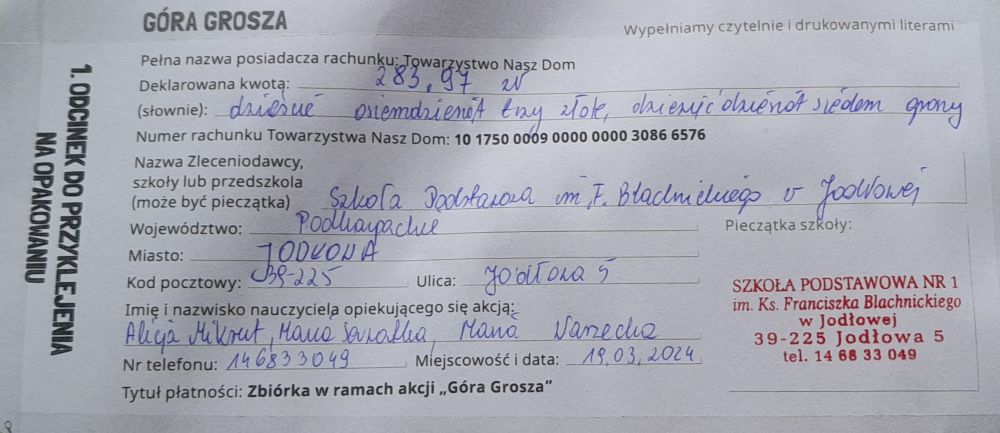 GÓRA GROSZA
Wypełniamy czytelnie i drukowanymi literami
1. ODCINEK DO PRZYKLEJENIA
NA OPAKOWANIU
Pełna nazwa posiadacza rachunku: Towarzystwo Nasz Dom
Deklarowana kwota: 283,97 zł
(słownie): dwieście osiemdziesiąt trzy złote, dziewięćdziesiąt siedem groszy
Numer rachunku Towarzystwa Nasz Dom: 10 1750 0009 0000 0000 3086 6576
Nazwa Zleceniodawcy,
szkoły lub przedszkola
(może być pieczątka) Szkoła Podstawowa im. F. Blachnickiego w Jodłowej
Województwo: Podkarpackie
Pieczątka szkoły:
Miasto: JODŁOWA
Kod pocztowy: 39-225 Ulica: Jodłowa 5
SZKOŁA PODSTAWOWA NR 1
im. Ks. Franciszka Blachnickiego
w Jodłowej
39-225 Jodłowa 5
tel. 14 68 33 049
Imię i nazwisko nauczyciela opiekującego się akcją:
Alicja Mikrut, Maria Maria
Nr telefonu: 146833049 Miejscowość i data: 19.03.2024
Tytuł płatności: Zbiórka w ramach akcji „Góra Grosza”